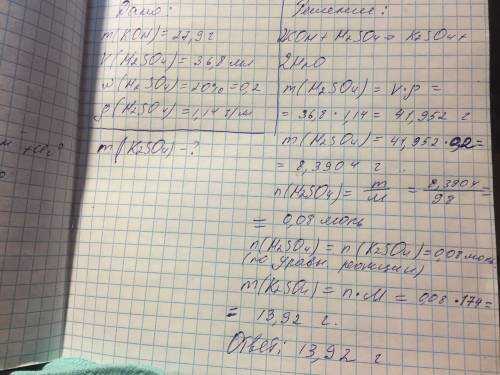 Дано:
m(KOH) = 22,9 г
V(H2SO4) = 36,8 мл
ω(H2SO4) = 20% = 0,2
ρ(H2SO4) = 1,14 г/мл
m(K2SO4) - ?
Решение:
2KOH + H2SO4 = K2SO4 +
2H2O
m(H2SO4) = V·ρ =
= 36,8 · 1,14 = 41,952 г
m(H2SO4) = 41,952 · 0,2 =
= 8,3904 г
n(H2SO4) = m/M = 8,3904/98 =
= 0,08 моль
n(H2SO4) = n(K2SO4) = 0,08 моль
(по уравн. реакции)
m(K2SO4) = n·M = 0,08 · 174 =
= 13,92 г.
Ответ: 13,92 г